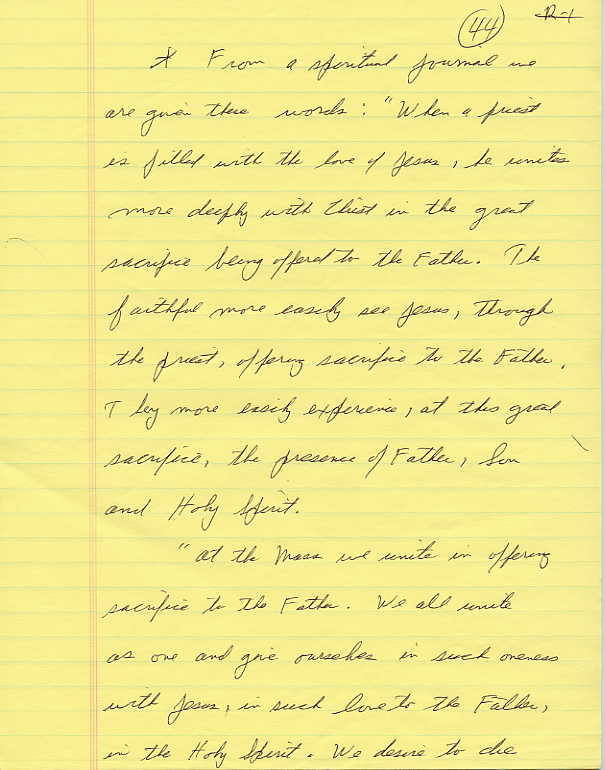 44 R-1
* From a spiritual journal we
are given these words: "When a priest
is filled with the love of Jesus, he unites
more deeply with Christ in the great
sacrifice being offered to the Father. The
faithful more easily see Jesus, through
the priest, offering sacrifice to the Father.
They more easily experience, at this great
sacrifice, the presence of Father, Son
and Holy Spirit.
"At the Mass we unite in offering
sacrifice to the Father. We all unite
as one and give ourselves in such oneness
with Jesus, in such love to the Father,
in the Holy Spirit. We desire to die